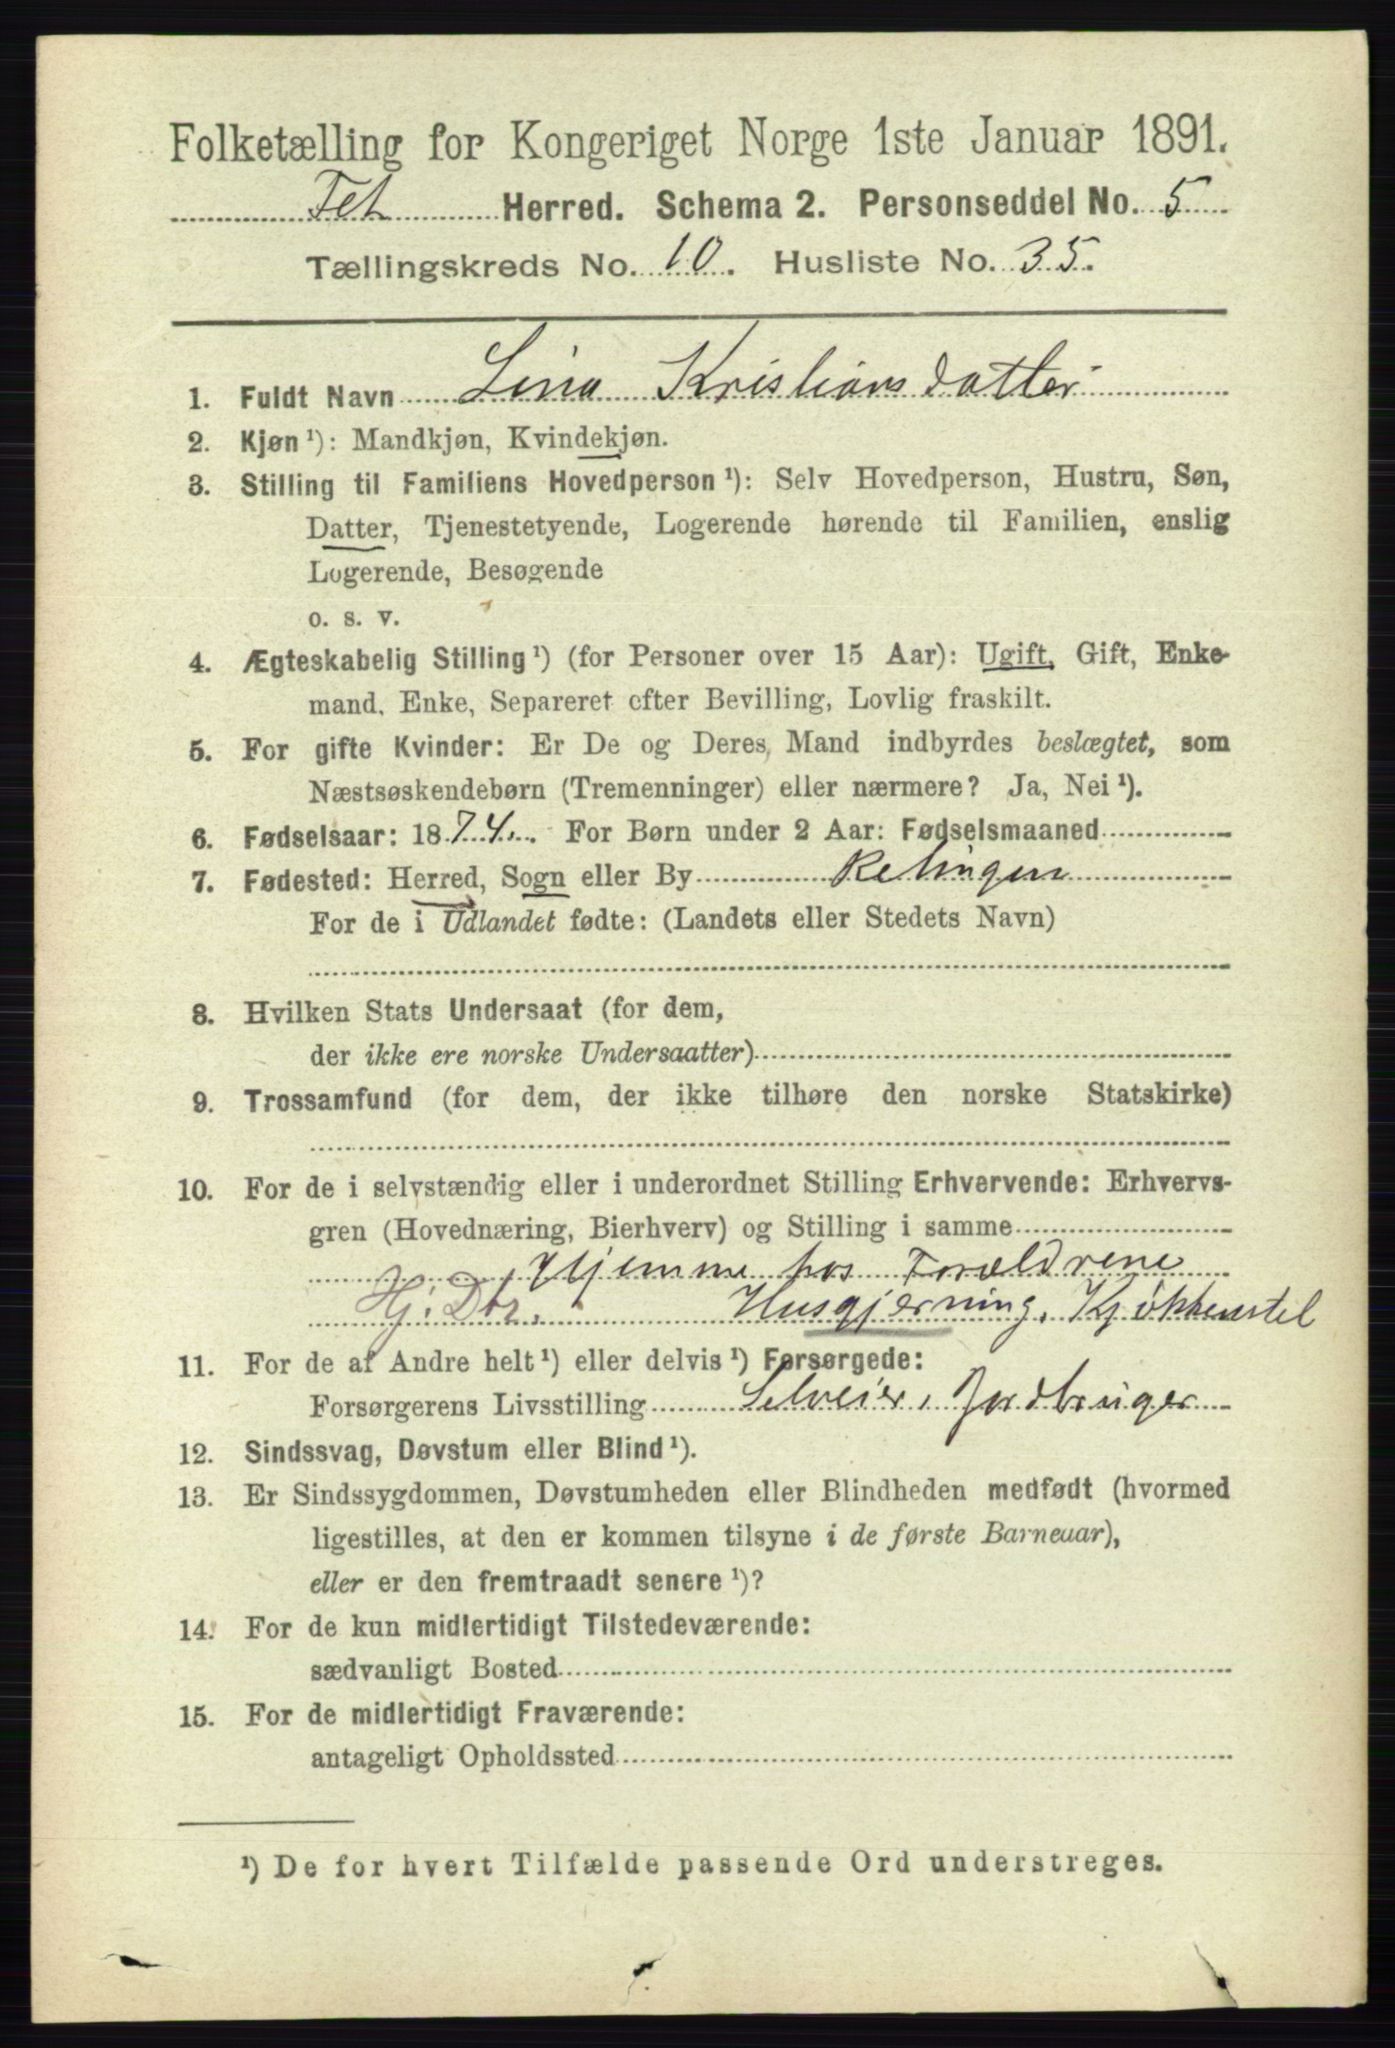 Folketælling for Kongeriget Norge 1ste Januar 1891.
Fet Herred. Schema 2. Personseddel No. 5
Tællingskreds No. 10. Husliste No. 35.
1. Fuldt Navn Lina Kristiansdatter
2. Kjøn¹): Mandkjøn, Kvindekjøn.
3. Stilling til Familiens Hovedperson¹): Selv Hovedperson, Hustru, Søn,
Datter, Tjenestetyende, Logerende hørende til Familien, enslig
Logerende, Besøgende
o. s. v.
4. Ægteskabelig Stilling¹) (for Personer over 15 Aar): Ugift, Gift, Enke-
mand, Enke, Separeret efter Bevilling, Lovlig fraskilt.
5. For gifte Kvinder: Er De og Deres Mand indbyrdes beslægtet, som
Næstsøskendebørn (Tremenninger) eller nærmere? Ja, Nei¹).
6. Fødselsaar: 1874. For Børn under 2 Aar: Fødselsmaaned
7. Fødested: Herred, Sogn eller By Relingen
For de i Udlandet fødte: (Landets eller Stedets Navn)
8. Hvilken Stats Undersaat (for dem,
der ikke ere norske Undersaatter)
9. Trossamfund (for dem, der ikke tilhøre den norske Statskirke)
10. For de i selvstændig eller i underordnet Stilling Erhvervende: Erhvervs-
gren (Hovednæring, Bierhverv) og Stilling i samme
Hjemme hos Forældrene
Hj. Dtr. Husgjerning, Kjøkkenstel
11. For de af Andre helt¹) eller delvis¹) Forsørgede:
Forsørgerens Livsstilling Selveier, Jordbruger
12. Sindssvag, Døvstum eller Blind¹).
13. Er Sindssygdommen, Døvstumheden eller Blindheden medfødt (hvormed
ligestilles, at den er kommen tilsyne i de første Barneaar),
eller er den fremtraadt senere¹)?
14. For de kun midlertidigt Tilstedeværende:
sædvanligt Bosted
15. For de midlertidigt Fraværende:
antageligt Opholdssted
¹) De for hvert Tilfælde passende Ord understreges.